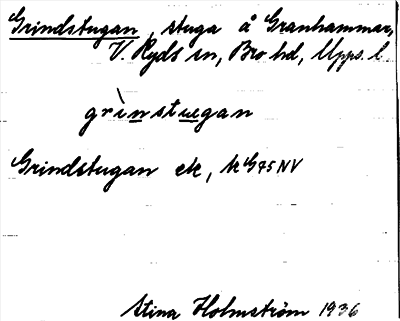 Grindstugan, stuga å Granhammar,
V. Ryds sn, Bro hd, Upps. l.
grìnstuegan
Grindstugan ek, k G45NV
Stina Holmström 1936